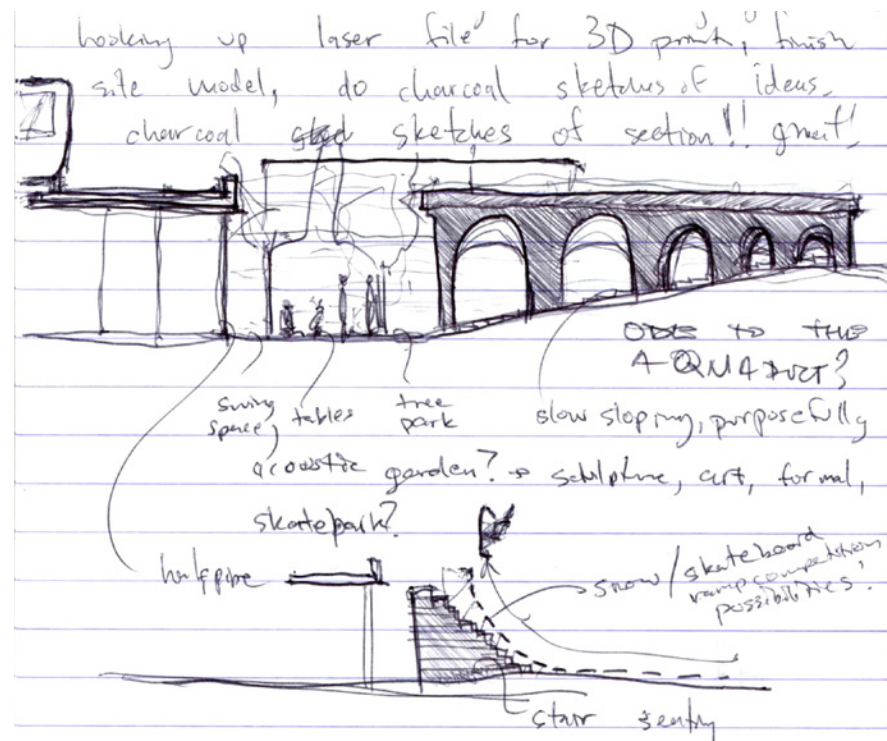 hooking up laser file for 3D print, finish
site model, do charcoal sketches of ideas.
charcoal sketches of section!! great!
ODE TO THE
AQUADUCT?
slow sloping, purposefully
swing space, tables tree park
acoustic garden? → sculpture, art, formal,
skatepark?
halfpipe
snow/skateboard
ramp competition
possibilities!
stair seating